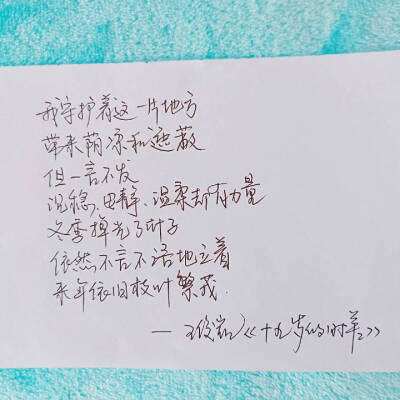 我守护着这一片地方
带来荫凉和遮蔽
但一言不发
沉稳、恬静、温柔却有力量
冬季掉光了叶子
依然不言不语地立着
来年依旧枝叶繁茂.
—王俊凯《十九岁的时差》